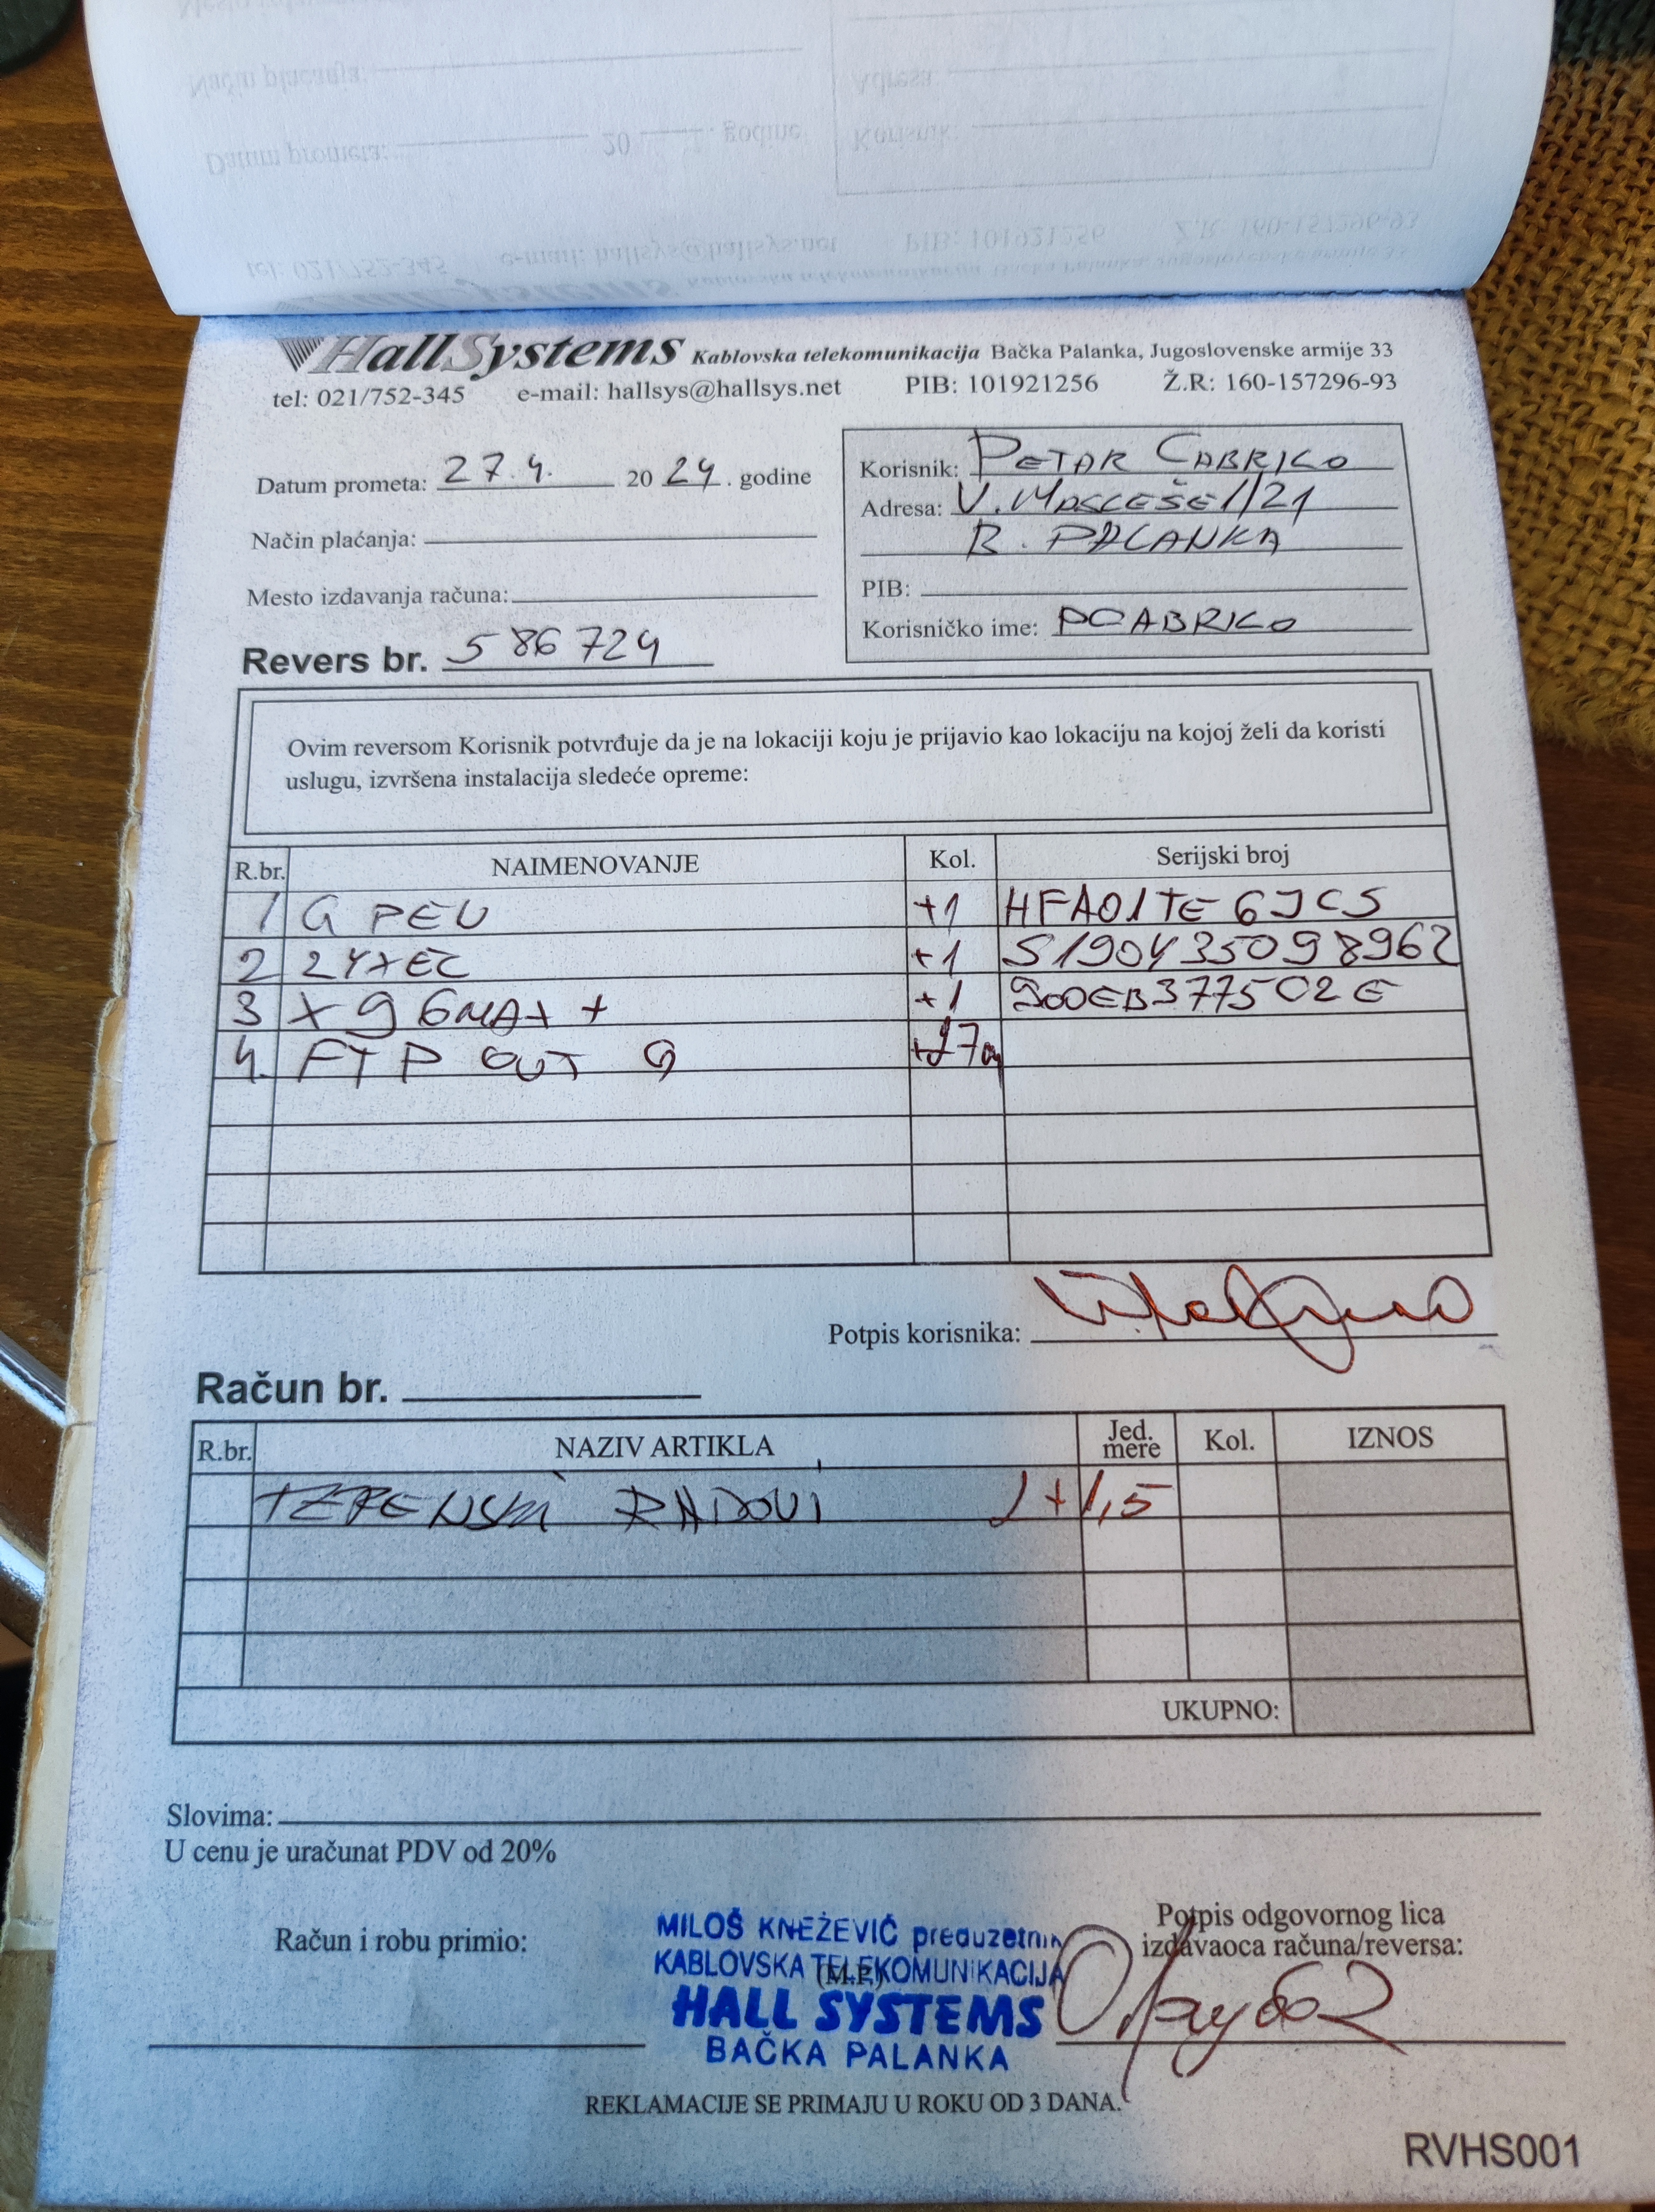 HallSystems Kablovska telekomunikacija Bačka Palanka, Jugoslovenske armije 33
tel: 021/752-345 e-mail: hallsys@hallsys.net PIB: 101921256 Ž.R: 160-157296-93
Datum prometa: 27.4. 2024. godine
Način plaćanja:
Mesto izdavanja računa:
Revers br. 586724
Korisnik: PETAR ČABRILO
Adresa: V. MASLEŠE 1/21
B. PALANKA
PIB:
Korisničko ime: PCABRILO
Ovim reversom Korisnik potvrđuje da je na lokaciji koju je prijavio kao lokaciju na kojoj želi da koristi
uslugu, izvršena instalacija sledeće opreme:
R.br. NAIMENOVANJE Kol. Serijski broj
1 G PEU +1 HFA01TE6JCS
2 ZYXEL +1 S190Y35098962
3 X96MAX+ +1 900EB377502E
4. FTP OUT G
Potpis korisnika:
Račun br.
R.br. NAZIV ARTIKLA Jed. mere Kol. IZNOS
TERENSKI RADOVI 1+1,5
UKUPNO:
Slovima:
U cenu je uračunat PDV od 20%
Račun i robu primio:
(M.P.)
MILOŠ KNEŽEVIĆ preduzetnik
KABLOVSKA TELEKOMUNIKACIJA
HALL SYSTEMS
BAČKA PALANKA
Potpis odgovornog lica
izdavaoca računa/reversa:
REKLAMACIJE SE PRIMAJU U ROKU OD 3 DANA.
RVHS001